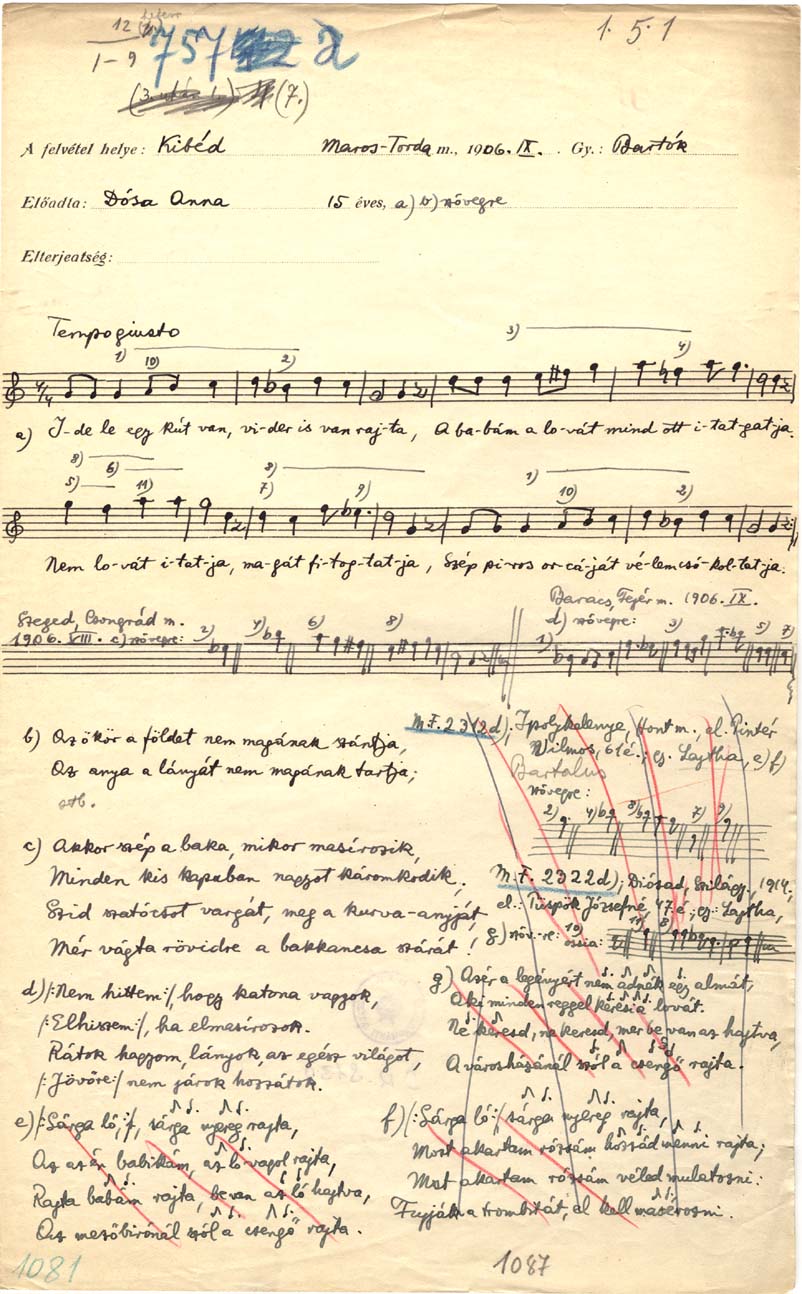 12
1-9 757 a
1. 5. 1
(7.)
A felvétel helye: Kibéd Maros-Torda m., 1906. IX. Gy.: Bartók
Előadta: Dósa Anna 15 éves, a) b) szövegre
Elterjedtség:
Tempo giusto
3)
1) 10) 2) 4)
4/4
a) I-de le egy kút van, vi-der is van raj-ta, A ba-bám a lo-vát mind ott i-tat-gat-ja.
8) 6) 8) 1)
5) 11) 7) 9) 10) 2)
Nem lo-vát i-tat-ja, ma-gát fi-tog-tat-ja, Szép pi-ros or-cá-ját vé-lem csó-kol-tat-ja.
Baracs, Fejér m. 1906. IX.
d) szövegre:
Szeged, Csongrád m.
1906. VIII. c) szövegre: 2) 4) 6) 8)
1) 3) 5) 7)
b) Az ökör a földet nem magának szántja,
Az anya a lányát nem magának tartja;
stb.
M.F. 2312d); Ipolykelenye, Hont m., el. Pintér
Vilmos, 61 é.; gy. Lajtha, e) f)
Bartalus
szövegre:
2) 4) 8) 7) 9)
c) Akkor szép a baka, mikor masírozik,
Minden kis kapuban nagyot káromkodik.
Szid szatócsot vargát, meg a kurva-anyját,
Mér vágta rövidre a bakkancsa szárát!
M.F. 2322d); Diósad, Szilágy., 1914,
el.: Püspök Józsefné, 47 é.; gy.: Lajtha,
g) szöv.-re: 10) ossia: 11) 8)
d) /:Nem hittem:/, hogy katona vagyok,
/:Elhiszem:/, ha elmasírozok.
Rátok hagyom, lányok, az egész világot,
/:Jövőre:/ nem járok hozzátok.
g) Azér a legényért nem adnák egy almát,
Aki minden reggel kéresi a lovát.
Ne keresd, ne keresd, mer be van az hajtva,
A városházánál szól a csengő rajta.
e) /:Sárga ló:/, sárga nyereg rajta,
Az azér babikám, az ló vagol rajta,
Rajta babám rajta, be van az ló hajtva,
Az mezőbirónál szól a csengő rajta.
f) /:Sárga ló:/ sárga nyereg rajta,
Most akartam rózsám hozzád menni rajta;
Most akartam rózsám véled mulatozni:
Fujják a trombitát, el kell masérozni.
1081
1087